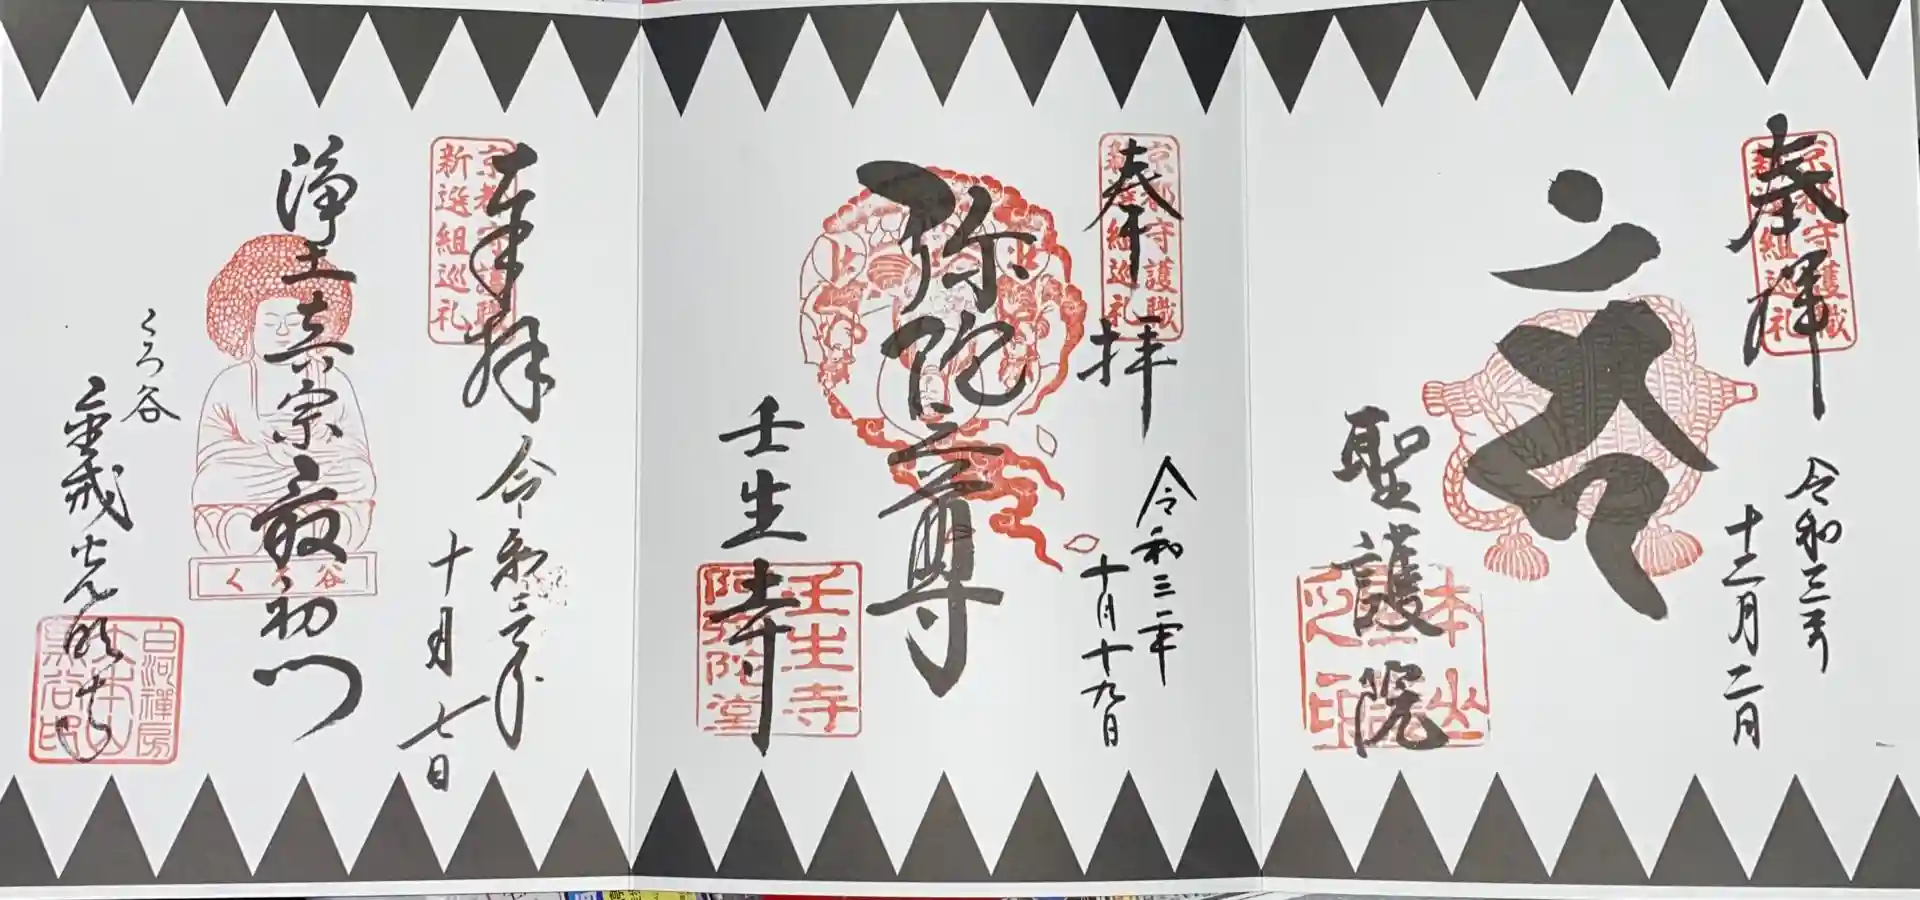 奉拝
京都守護職
新選組巡礼
令和三年
十二月二日
聖護院
本山
奉拝
京都守護職
新選組巡礼
令和三年
十月十九日
弥陀尊
壬生寺
壬生寺
阿弥陀堂
奉拝
京都守護職
新選組巡礼
令和三年
十月七日
浄土真宗最初門
くろ谷
くろ谷
金戒光明寺
白河禅房
大本山
黒谷印